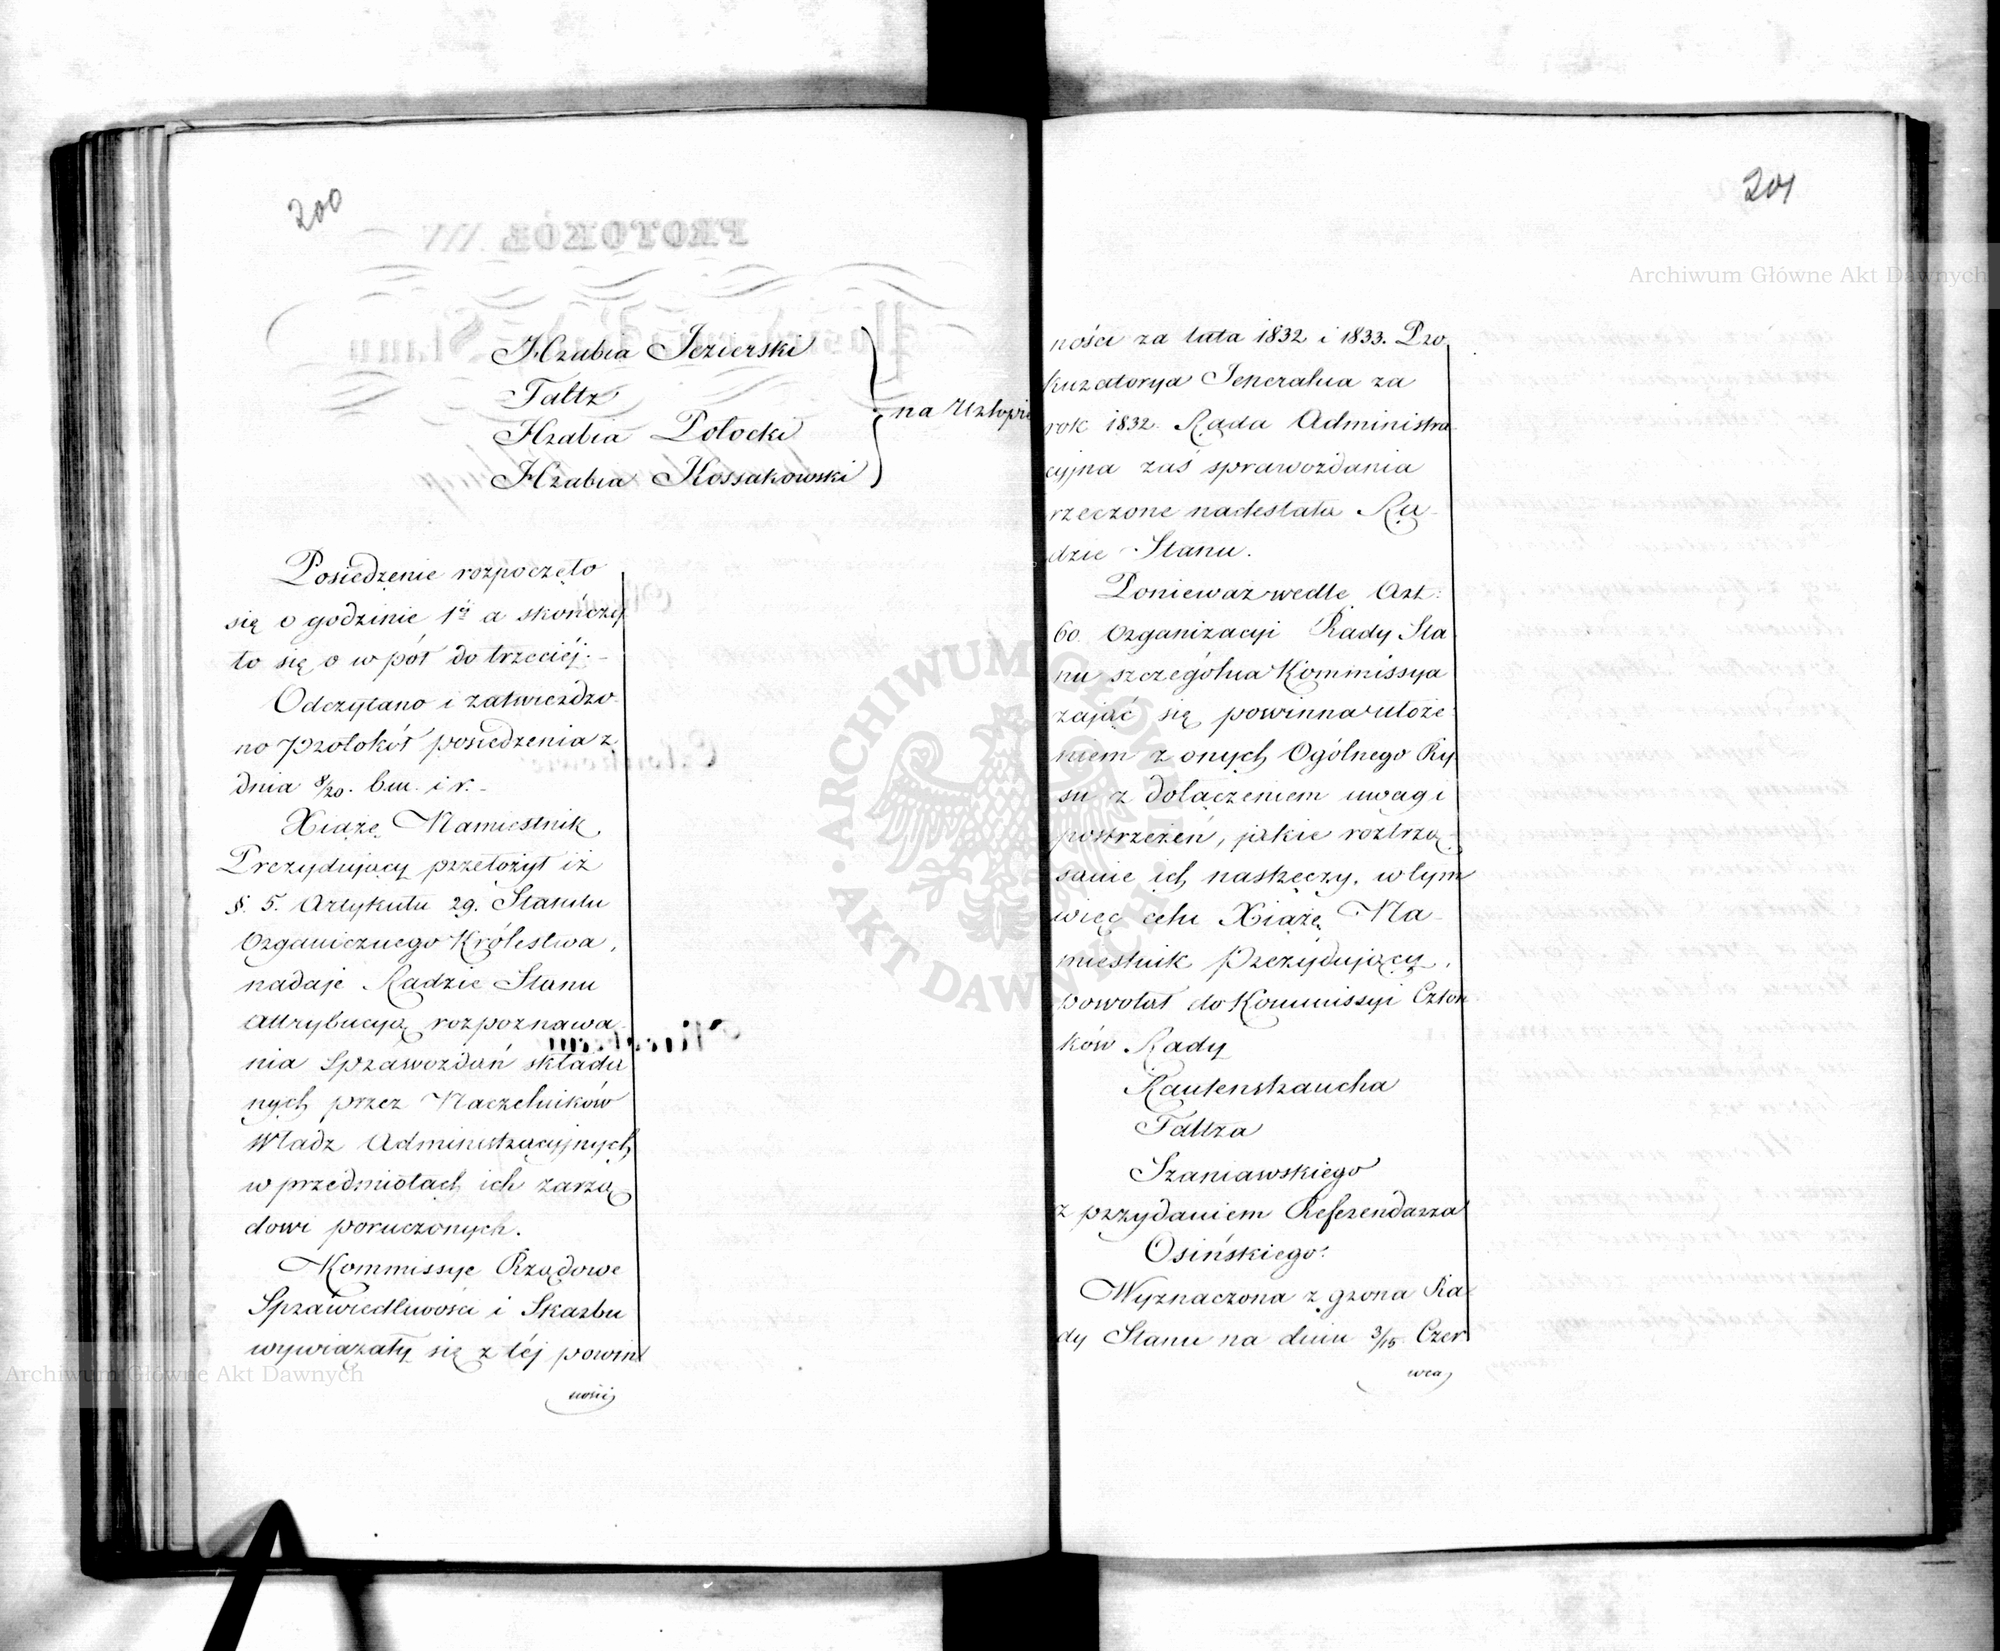 200
Hrabia Jezierski
Faltz
Hrabia Potocki
Hrabia Kossakowski
na Urlopie
Posiedzenie rozpoczęło
się o godzinie 1éj a skończy
ło się o w pół do trzeciéj.-
Odczytano i zatwierdzo
no Protokół posiedzenia z
dnia 8/20. b.m. i r.-
Xiąże Namiestnik,
Prezydujący przełożył iż
§. 5. Artykułu 29. Statutu
Organicznego Królestwa,
nadaje Radzie Stanu
Attrybucyą rozpoznawa
nia Sprawozdań składa
nych przez Naczelników
Władz Administracyjnych
w przedmiotach ich zarzą
dowi poruczonych.
Kommissye Rządowe
Sprawiedliwości i Skarbu
wywiązały się z téj powin
ności
201
ności za lata 1832 i 1833. Pro
kuratorya Jeneralna za
rok 1832. Rada Administra-
cyjna zaś sprawozdania
rzeczone nadesłała Ra-
dzie Stanu.
Ponieważ wedle Art:
60 Organizacyi Rady Sta
nu szczególna Kommissya
zająć się powinna ułoże-
niem z onych Ogólnego Ry
su z dołączeniem uwag i
postrzeżeń, jakie roztrzą-
sanie ich nastręczy, w tym
więc celu Xiąże Na-
miestnik Prezydujący,
powołał do Kommissyi Człon
ków Rady
Rautenstraucha
Faltza
Szaniawskiego
z przydaniem Referendarza
Osińskiego.
Wyznaczona z grona Ra
dy Stanu na dniu 3/15. Czer
wca
Archiwum Główne Akt Dawnych
Archiwum Główne Akt Dawnych
ARCHIWUM GŁÓWNE AKT DAWNYCH